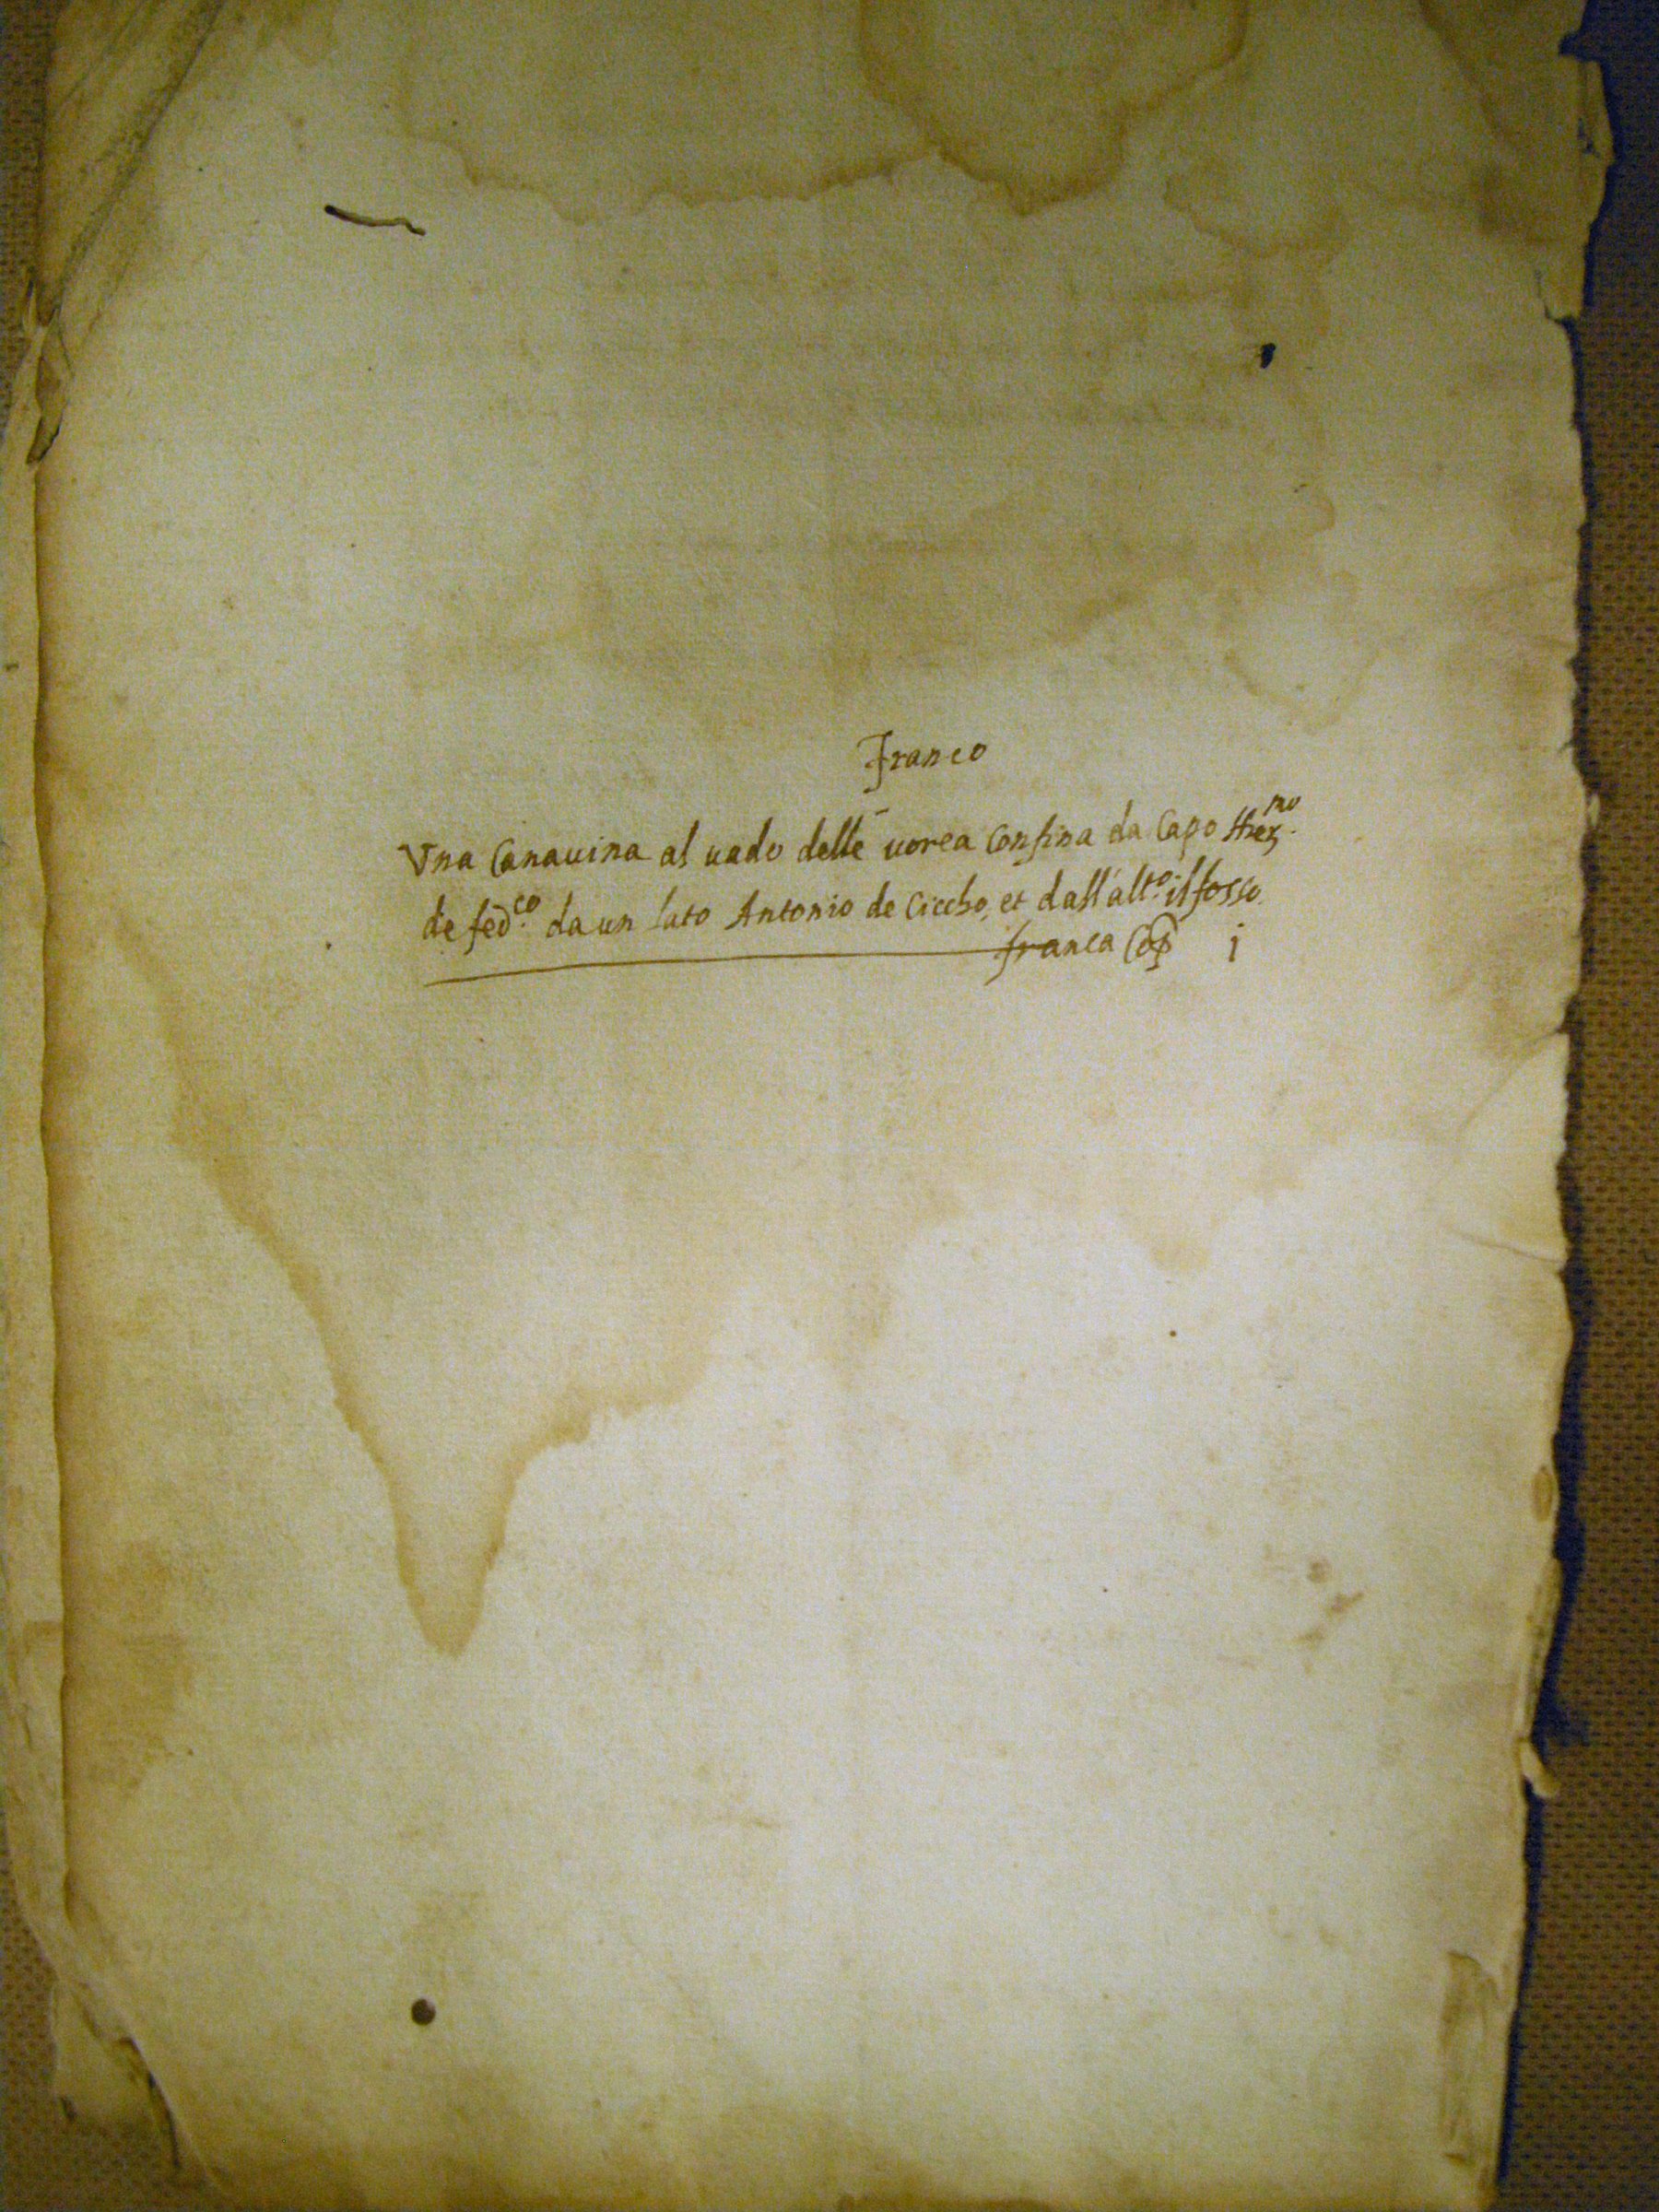 Franco
Vna Canauina al uado delle uorea Confina da Capo Hier.mo
de fed.co da un lato Antonio de Ciccho, et dall'alt.o il fosso.
franca Cop i